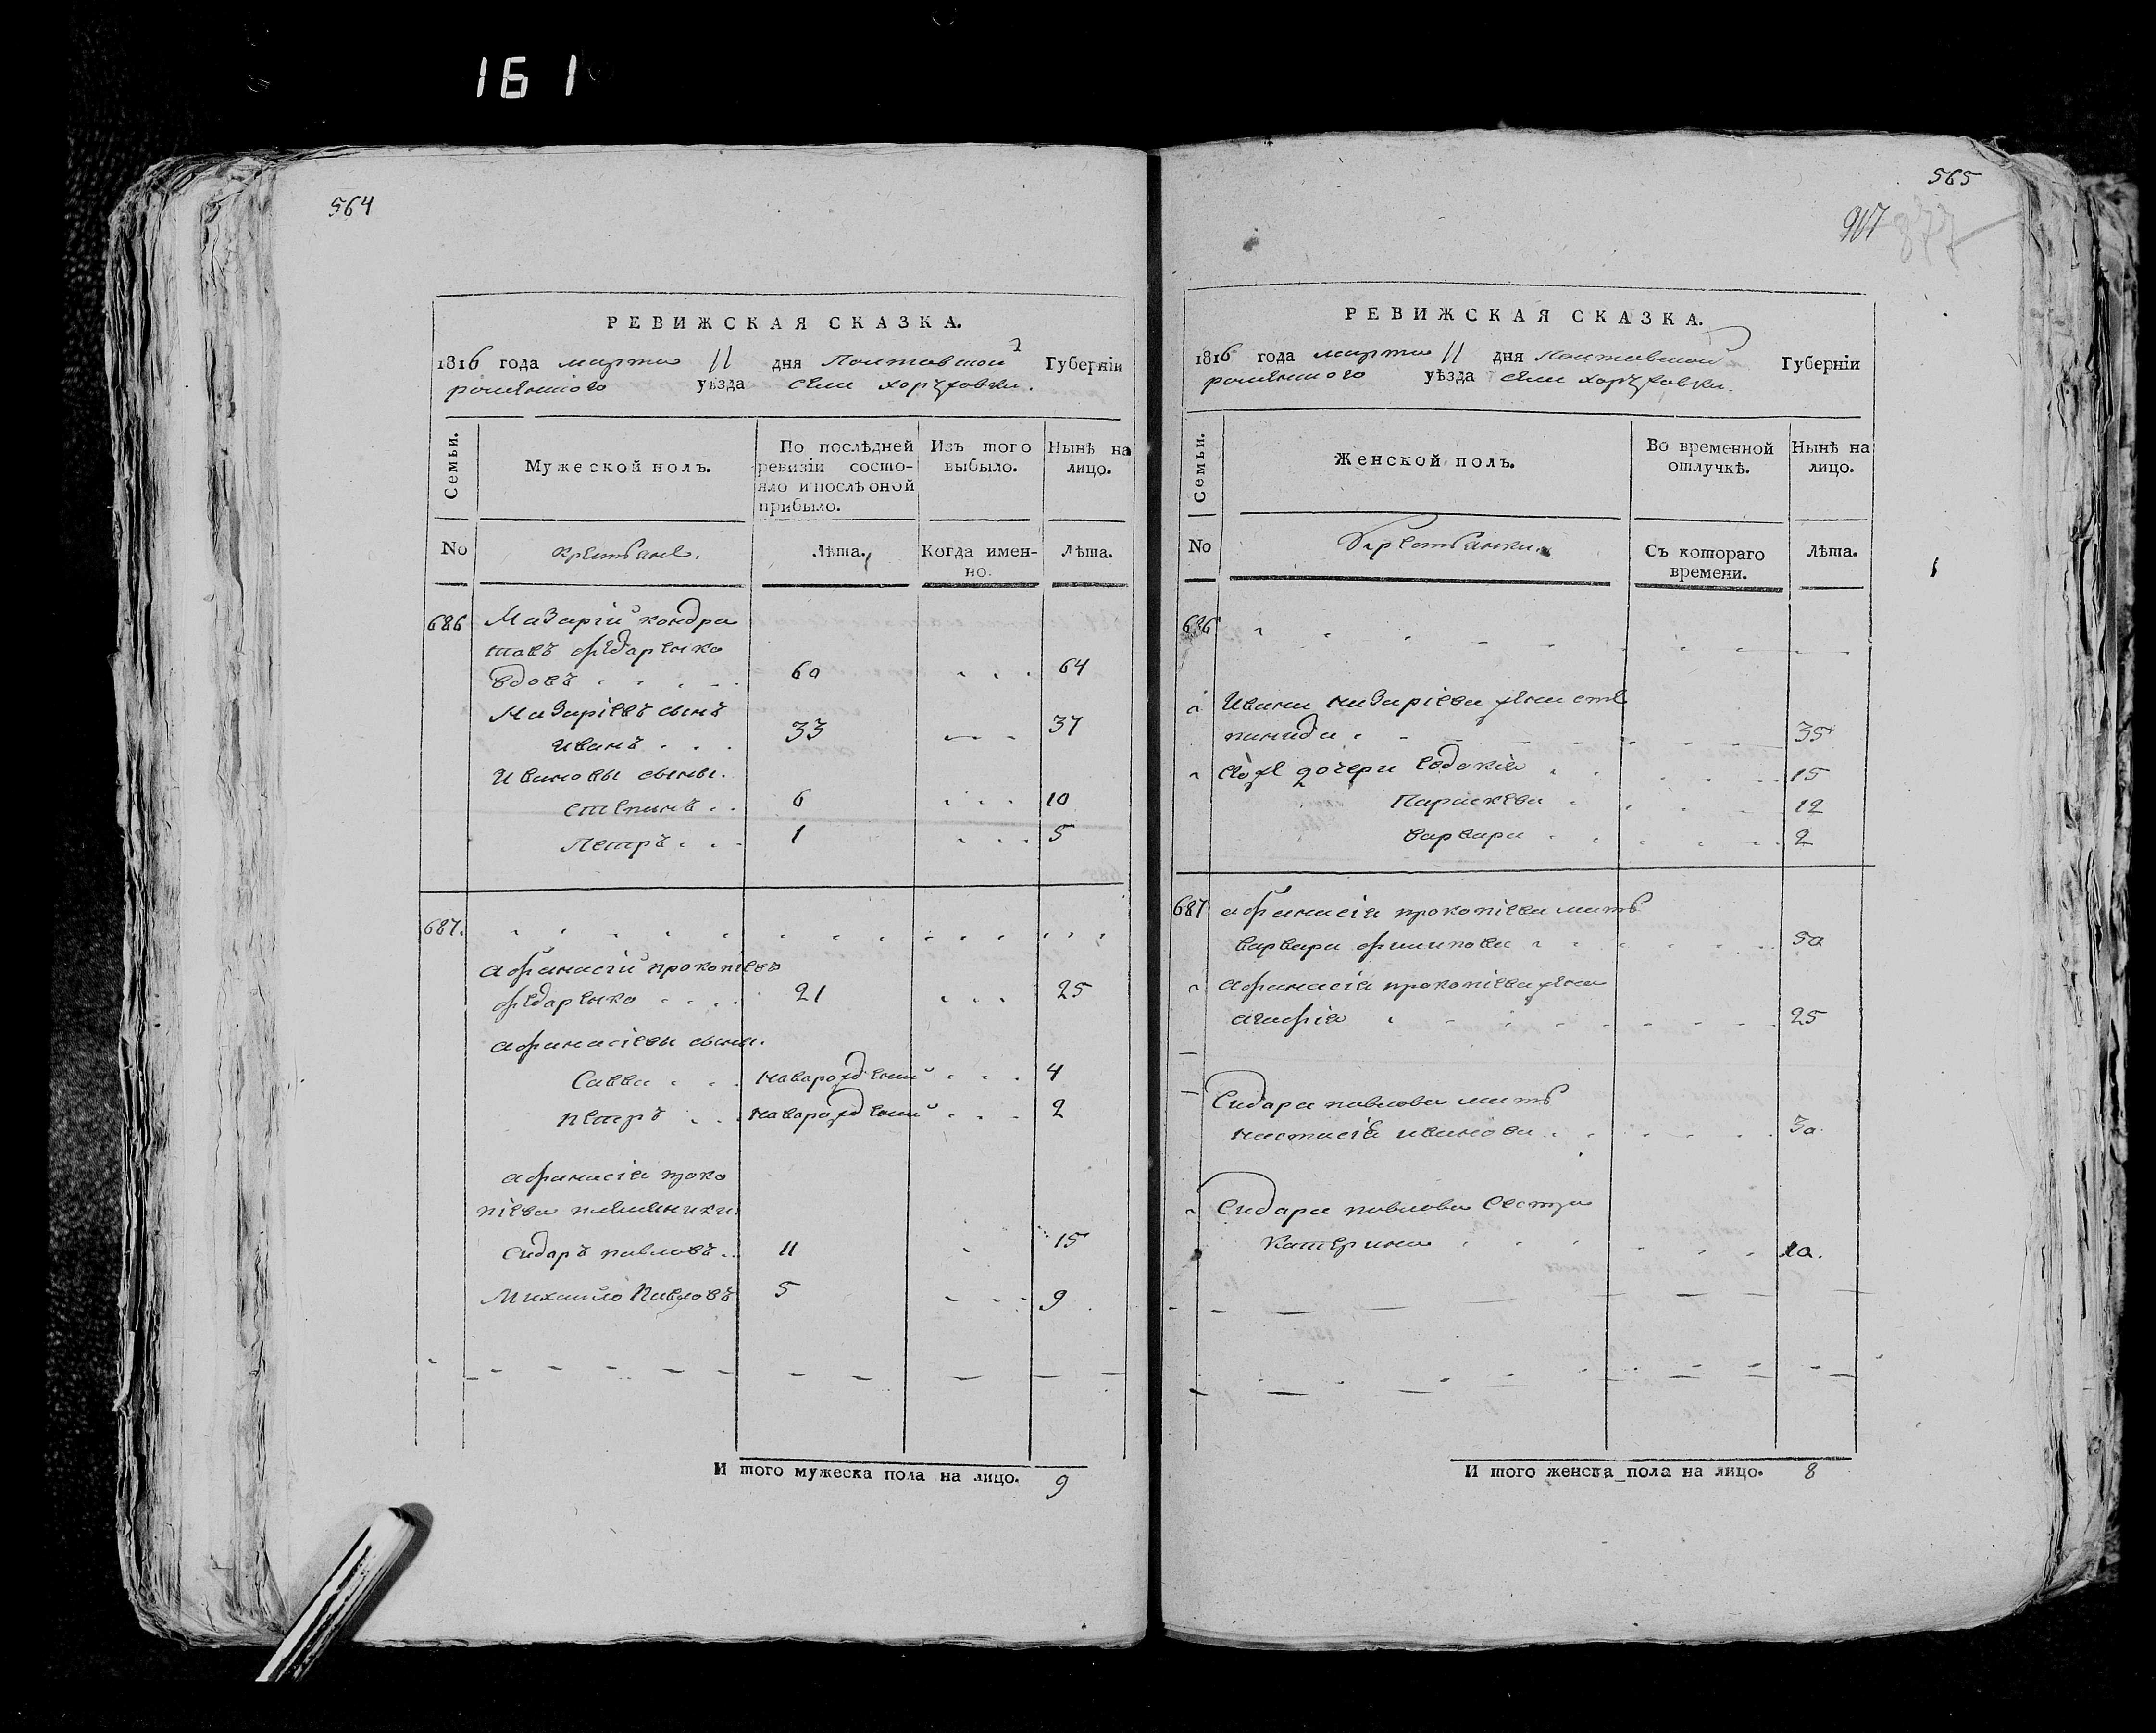 161
564
РЕВИЖСКАЯ СКАЗКА.
1816 года марта 11 дня Полтавской Губерніи
роменского уѣзда села хоружовки.
Семьи.
Мужеской полъ.
По послѣдней ревизіи состояло и послѣ оной прибыло.
Изъ того выбыло.
Нынѣ на лицо.
No
крестьяне.
Лѣта.
Когда именно.
Лѣта.
686 Назарій кондра
товъ федаренко
вдовъ 60 64
Назаріевъ сынъ
иванъ 33 37
Ивановы сыны.
степанъ 6 10
Петръ 1 5
687.
афанасій прокопіевъ
федаренко 21 25
афанасіевы сыны.
Савва наварожденый 4
петръ наварожденый 2
афанасія проко
піева племеники
сидаръ павловъ 11 15
Михаило Павловъ 5 9
И того мужеска пола на лицо. 9
565
907 877
РЕВИЖСКАЯ СКАЗКА.
1816 года марта 11 дня Полтавской Губерніи
роменского уѣзда села хоружовки.
Семьи.
Женской полъ.
Во временной отлучкѣ.
Нынѣ на лицо.
No
крестьянки.
Съ котораго времени.
Лѣта.
686
Ивана назаріева жена сте
панида 35
его же дочери евдокія 15
Параскева 12
варвара 2
687 афанасія прокопіева мать
варвара филипова 50
афанасія прокопіева жена
агафія 25
Сидара павлова мать
настасія иванова 30
Сидара павлова сестра
Катерина 10.
И того женска пола на лицо. 8